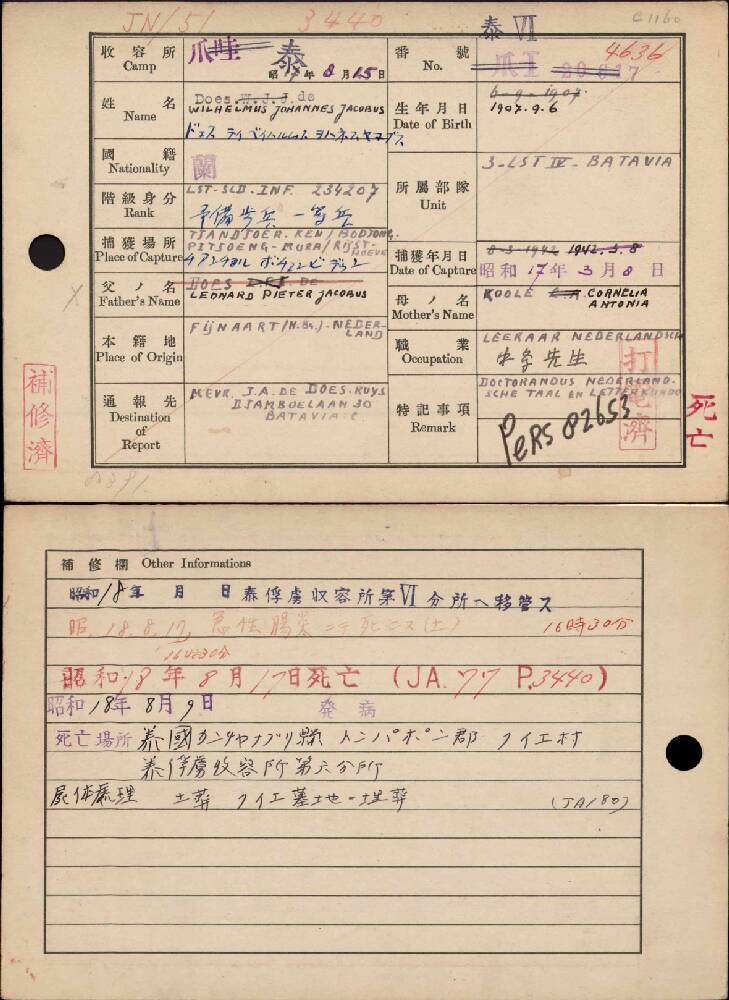 JN/51 3440 泰 VI C1160
收容所 Camp 爪哇 泰 昭17年8月15日 番號 No. 爪 II 20837 4636
姓名 Name Does. W.J.J. de
WILHELMUS JOHANNES JACOBUS
生年月日 Date of Birth 6-9-1907
1907.9.6
國籍 Nationality 蘭
階級身分 Rank LST-SLD. INF. 234207
予備歩兵 一等兵
所屬部隊 Unit 3-LST IV - BATAVIA
捕獲場所 Place of Capture TJANDJOER. KEN / BODJONG.
PITSOENG - MURA / RIJST-
HOEVE
捕獲年月日 Date of Capture 8-3-1942 1942.3.8
昭和 17年 3月 8日
父ノ名 Father's Name DOES DE
LEONARD PIETER JACOBUS
母ノ名 Mother's Name KOOLE C.A. CORNELIA
ANTONIA
本籍地 Place of Origin FIJNAART (N.Br.) - NEDER-
LAND
職業 Occupation LEERAAR NEDERLANDSCH
中学先生
通報先 Destination of Report MEVR. J.A. DE DOES-RUYS
DJAMBOELAAN 30
BATAVIA. C
特記事項 Remark DOCTORANDUS NEDERLAND-
SCHE TAAL EN LETTERKUNDE
PERS 82653
補修濟
打電濟
死亡
補修欄 Other Informations
昭和18年 月 日 泰俘虜収容所第VI分所ヘ移管ス
昭.18.8.17. 急性腸炎ニテ死亡ス(土) 16時30分
16時30分
昭和18年8月17日死亡 (JA.77 P.3440)
昭和18年8月9日 発病
死亡場所 泰國カンチャナブリ縣 トンパポン郡 クイエ村
泰俘虜收容所第六分所
屍体處理 土葬 クイエ墓地ニ埋葬 (JA180)